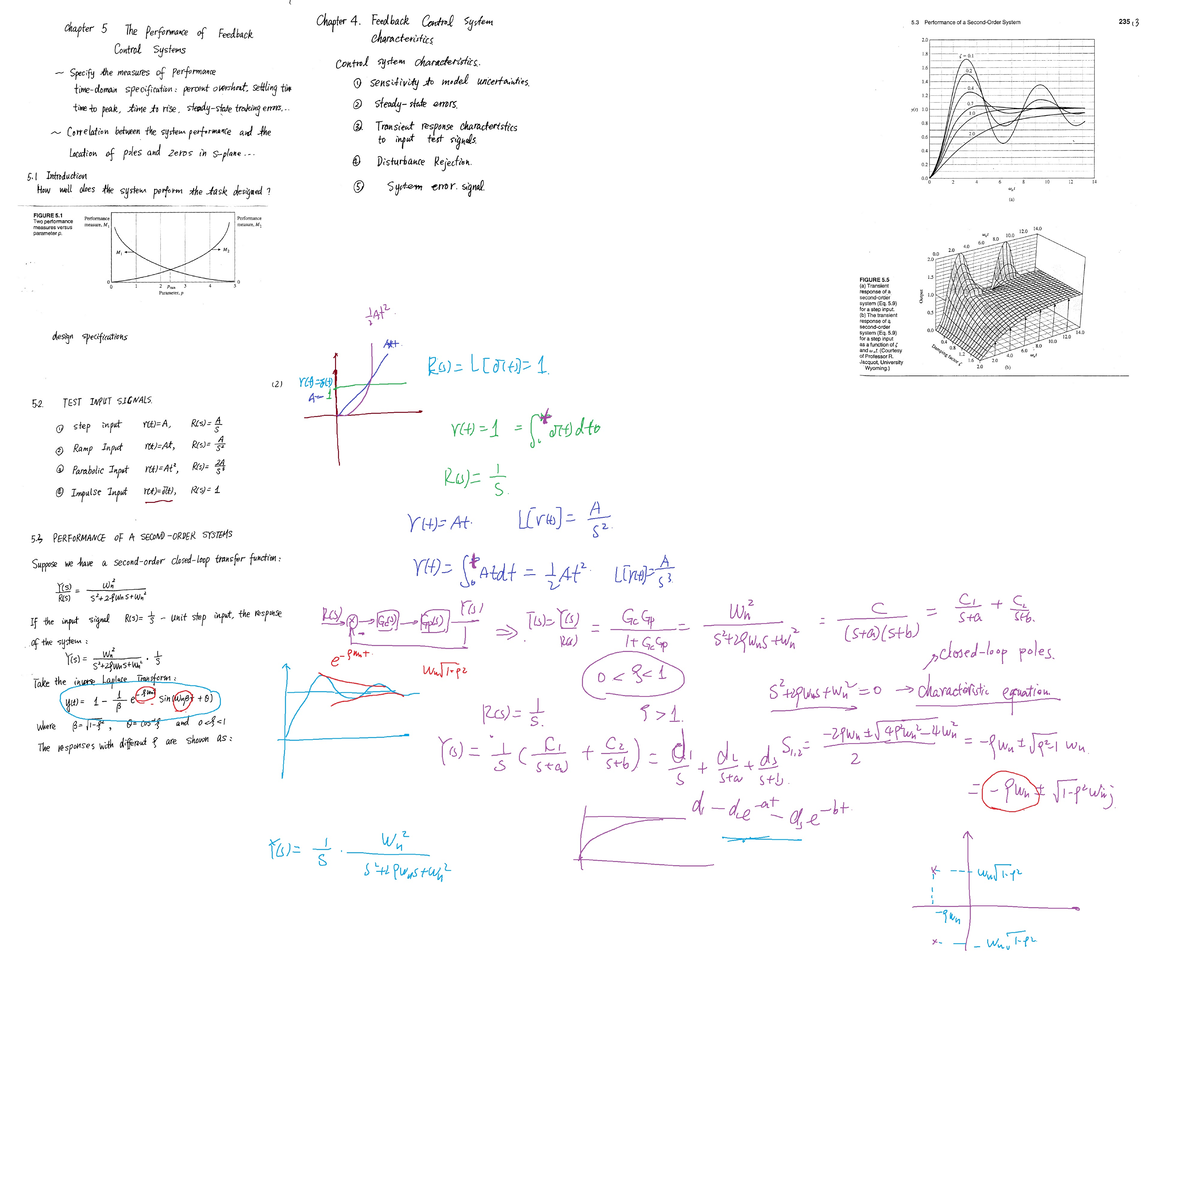 Chapter 5 The Performance of Feedback
Control Systems
~ Specify the measures of performance
time-domain specification: percent overshoot, settling tim
time to peak, time to rise, steady-state tracking errors...
~ Correlation between the system performance and the
location of poles and zeros in s-plane...
5.1 Introduction
How well does the system perform the task designed?
FIGURE 5.1
Two performance
measures versus
parameter p.
Performance
measure, M₁
Performance
measure, M₂
M₁
M₂
0 1 2 Pmin 3 4 5
Parameter, p
design specifications
5.2 TEST INPUT SIGNALS.
① step input r(t)=A, R(s)= A/s
② Ramp Input r(t)=At, R(s)= A/s²
③ Parabolic Input r(t)=At², R(s)= 2A/s³
④ Impulse Input r(t)=δ(t), R(s)= 1
5.3 PERFORMANCE OF A SECOND-ORDER SYSTEMS
Suppose we have a second-order closed-loop transfer function:
Y(s)/R(s) = Wn²/(s²+2ζWns+Wn²)
If the input signal R(s)= 1/s - unit step input, the response
of the system:
Y(s)= Wn²/(s²+2ζWns+Wn²) · 1/s
Take the inverse Laplace Transform:
y(t)= 1 - 1/β e^-ζWnt sin(Wnβt + θ)
where β=√1-ζ², θ=cos⁻¹ζ and 0<ζ<1
The responses with different ζ are shown as:
Chapter 4. Feedback Control System
Characteristics
Control system characteristics.
① sensitivity to model uncertainties.
② Steady-state errors.
③ Transient response characteristics
to input test signals.
④ Disturbance Rejection.
⑤ System error signal
½At²
At
(2)
r(t)=δ(t)
A 1
R(s)= L[δ(t)]= 1.
r(t)=1 = ∫₀ᵗ δ(t)dt
R(s)= 1/s.
r(t)= At. L[r(t)]= A/s².
r(t)= ∫₀ᵗ Atdt = ½At² L[r(t)]= A/s³
R(s) Gc(s) Gp(s) Y(s)
⇒ T(s)= Y(s)/R(s) = GcGp/(1+GcGp) = Wn²/(s²+2ζWns+Wn²) = C/((s+a)(s+b)) = C₁/(s+a) + C₂/(s+b).
closed-loop poles.
e^-ζWnt
Wn√1-ζ²
0 < ζ < 1
s²+2ζWns+Wn²=0 → characteristic equation
R(s)= 1/s. ζ > 1.
S₁,₂= (-2ζWn ± √4ζ²Wn²-4Wn²)/2 = -ζWn ± √ζ²-1 Wn.
= -ζWn ± √1-ζ² Wn j
Y(s)= 1/s (C₁/(s+a) + C₂/(s+b)) = d₁/s + d₂/(s+a) + d₃/(s+b).
d₁ - d₂e^-at - d₃e^-bt.
Y(s)= 1/s · Wn²/(s²+2ζWns+Wn²)
Wn√1-ζ²
-ζWn
-Wn√1-ζ²
5.3 Performance of a Second-Order System 235
2.0
1.8
1.6
1.4
1.2
y(t) 1.0
0.8
0.6
0.4
0.2
0.0
ζ = 0.1
0.2
0.4
0.7
1.0
2.0
0 2 4 6 8 10 12 14
ωnt
(a)
FIGURE 5.5
(a) Transient
response of a
second-order
system (Eq. 5.9)
for a step input.
(b) The transient
response of a
second-order
system (Eq. 5.9)
for a step input
as a function of ζ
and ωnt. (Courtesy
of Professor R.
Jacquot, University
of Wyoming.)
ωnt
0.0 2.0 4.0 6.0 8.0 10.0 12.0 14.0
Output
2.0
1.5
1.0
0.5
0.0
Damping factor ζ
0.4 0.8 1.2 1.6 2.0
2.0 4.0 6.0 8.0 10.0 12.0 14.0
ωnt
(b)